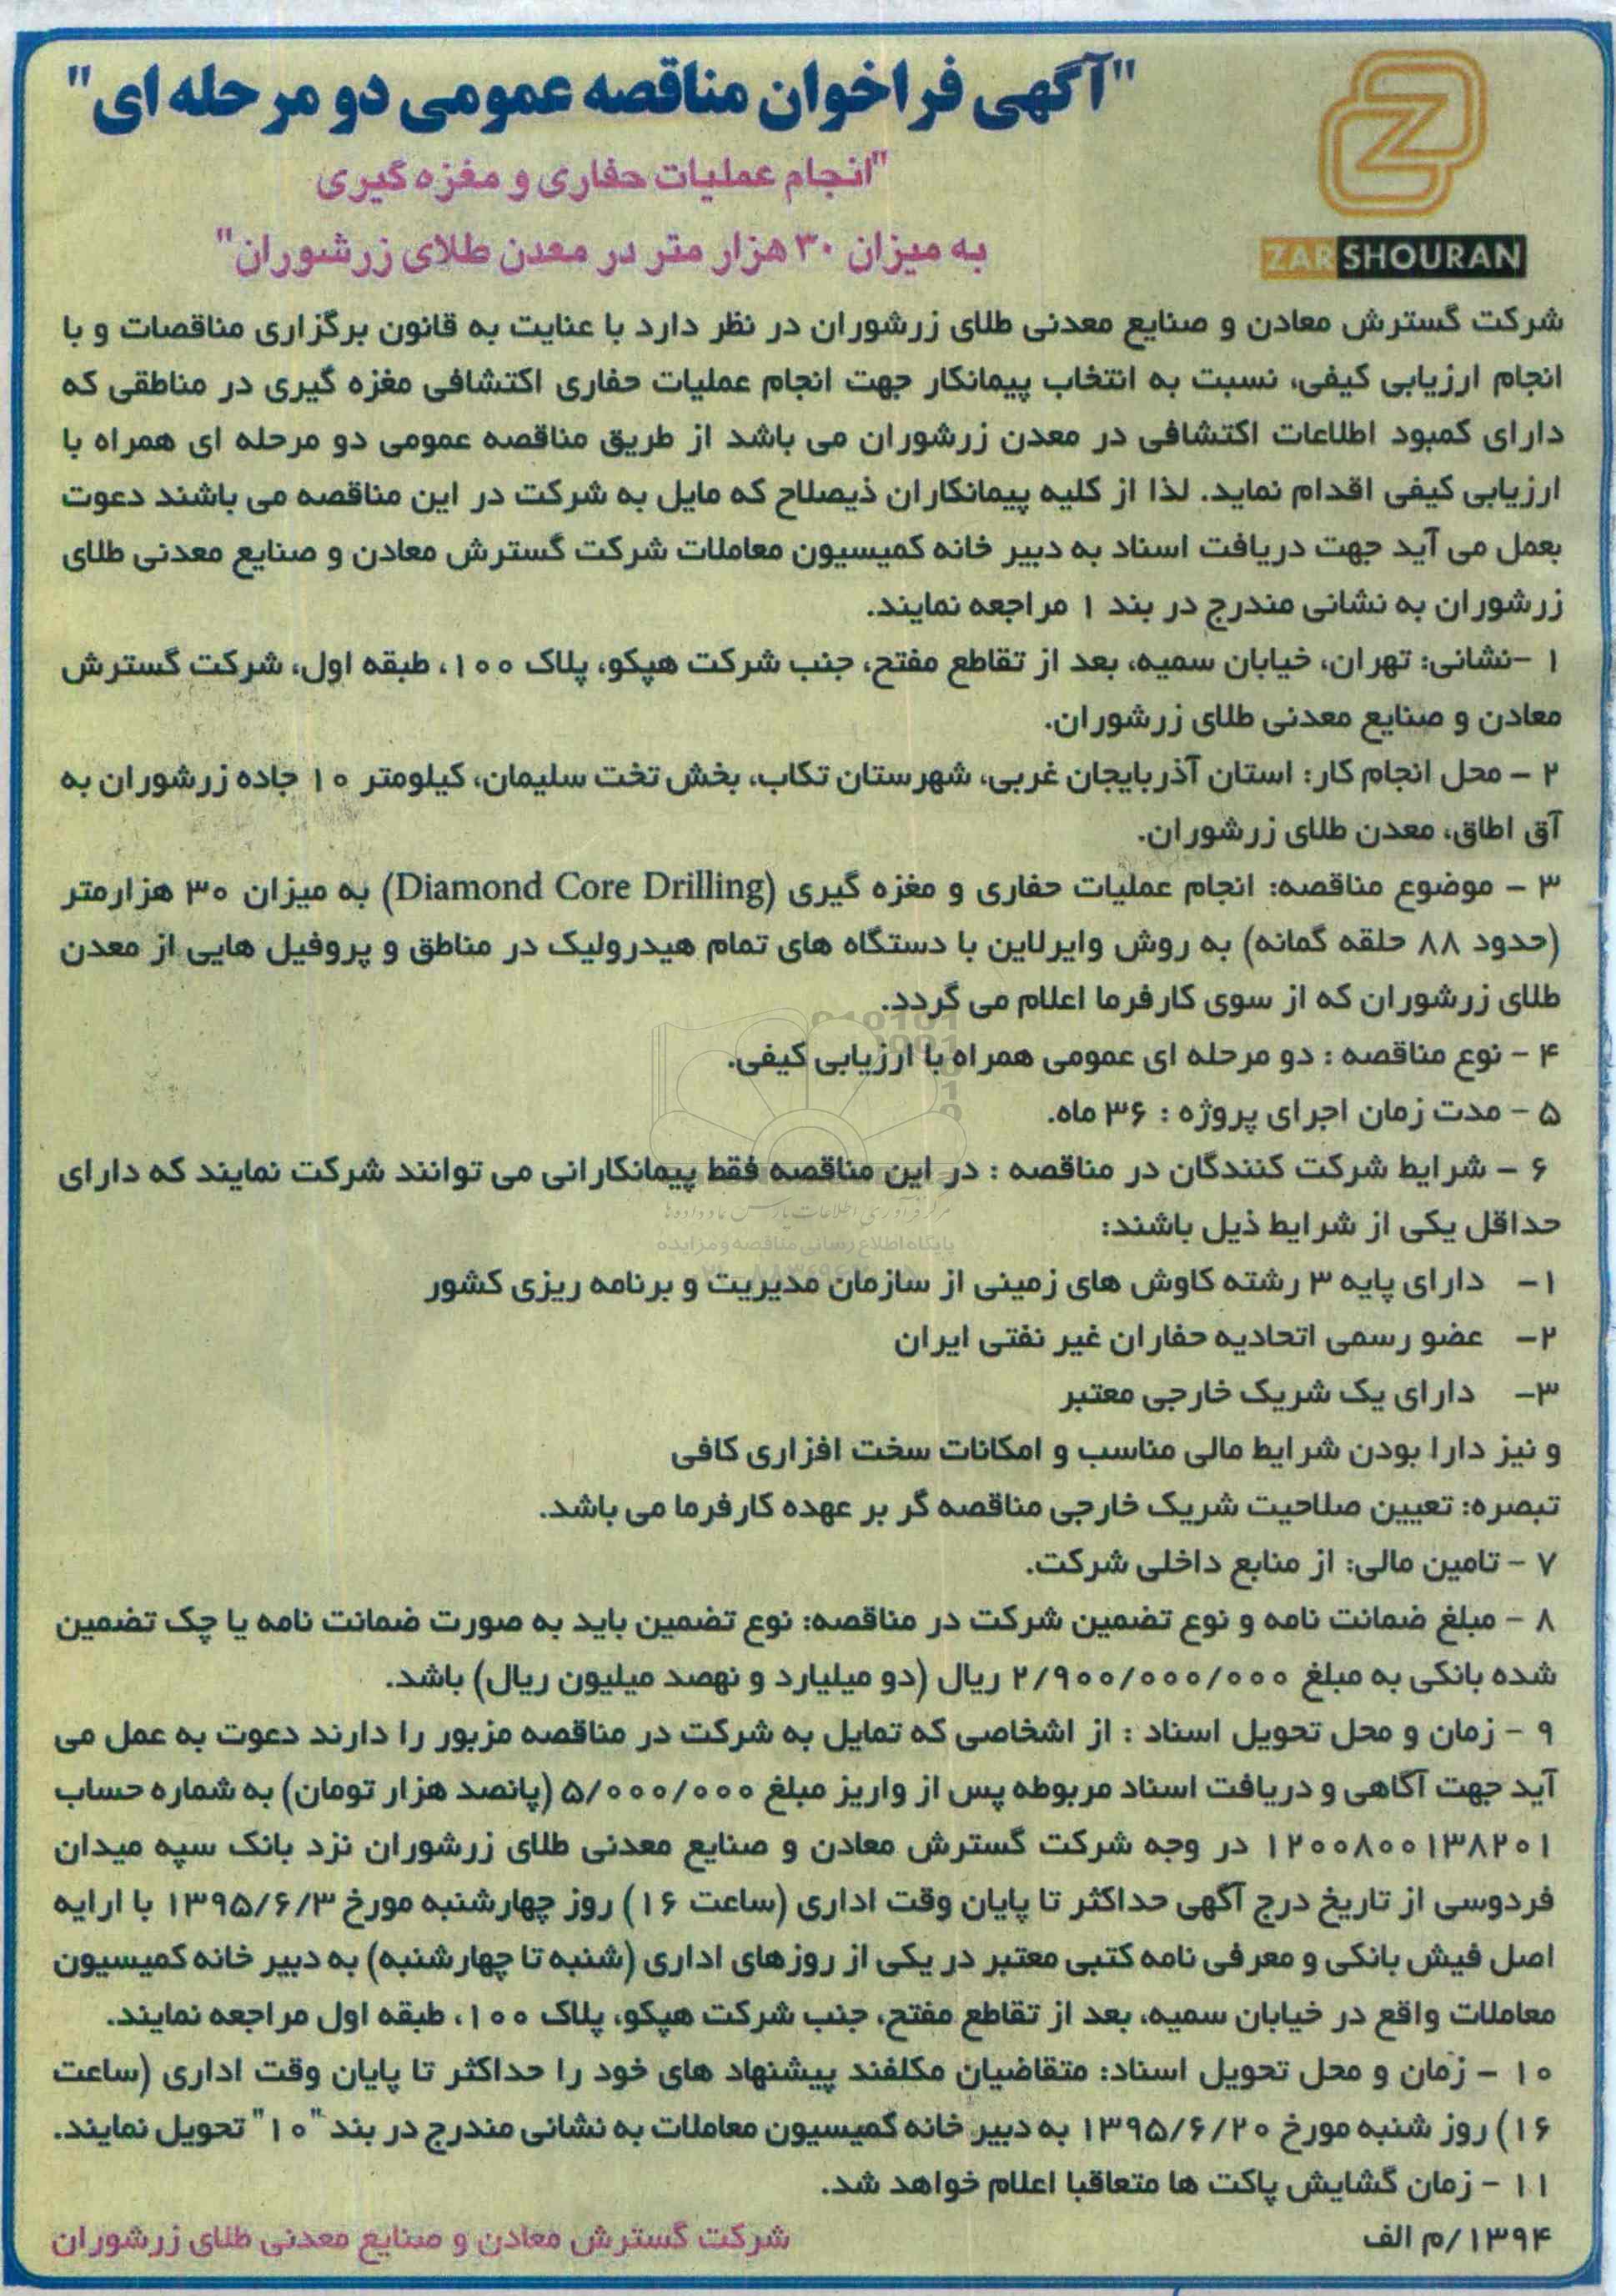 "آگهی فراخوان مناقصه عمومی دو مرحله ای"
"انجام عملیات حفاری و مغزه گیری
به میزان ۳۰ هزار متر در معدن طلای زرشوران"
ZARSHOURAN
شرکت گسترش معادن و صنایع معدنی طلای زرشوران در نظر دارد با عنایت به قانون برگزاری مناقصات و با
انجام ارزیابی کیفی، نسبت به انتخاب پیمانکار جهت انجام عملیات حفاری اکتشافی مغزه گیری در مناطقی که
دارای کمبود اطلاعات اکتشافی در معدن زرشوران می باشد از طریق مناقصه عمومی دو مرحله ای همراه با
ارزیابی کیفی اقدام نماید. لذا از کلیه پیمانکاران ذیصلاح که مایل به شرکت در این مناقصه می باشند دعوت
بعمل می آید جهت دریافت اسناد به دبیر خانه کمیسیون معاملات شرکت گسترش معادن و صنایع معدنی طلای
زرشوران به نشانی مندرج در بند ۱ مراجعه نمایند.
۱ -نشانی: تهران، خیابان سمیه، بعد از تقاطع مفتح، جنب شرکت هپکو، پلاک ۱۰۰، طبقه اول، شرکت گسترش
معادن و صنایع معدنی طلای زرشوران.
۲ - محل انجام کار: استان آذربایجان غربی، شهرستان تکاب، بخش تخت سلیمان، کیلومتر ۱۰ جاده زرشوران به
آق اطاق، معدن طلای زرشوران.
۳ - موضوع مناقصه: انجام عملیات حفاری و مغزه گیری (Diamond Core Drilling) به میزان ۳۰ هزارمتر
(حدود ۸۸ حلقه گمانه) به روش وایرلاین با دستگاه های تمام هیدرولیک در مناطق و پروفیل هایی از معدن
طلای زرشوران که از سوی کارفرما اعلام می گردد.
۴ - نوع مناقصه : دو مرحله ای عمومی همراه با ارزیابی کیفی.
۵ - مدت زمان اجرای پروژه : ۳۶ ماه.
۶ - شرایط شرکت کنندگان در مناقصه : در این مناقصه فقط پیمانکارانی می توانند شرکت نمایند که دارای
حداقل یکی از شرایط ذیل باشند:
پایگاه اطلاع رسانی مناقصه و مزایده
۱- دارای پایه ۳ رشته کاوش های زمینی از سازمان مدیریت و برنامه ریزی کشور
۲- عضو رسمی اتحادیه حفاران غیر نفتی ایران
۳- دارای یک شریک خارجی معتبر
و نیز دارا بودن شرایط مالی مناسب و امکانات سخت افزاری کافی
تبصره: تعیین صلاحیت شریک خارجی مناقصه گر بر عهده کارفرما می باشد.
۷ - تامین مالی: از منابع داخلی شرکت.
۸ - مبلغ ضمانت نامه و نوع تضمین شرکت در مناقصه: نوع تضمین باید به صورت ضمانت نامه یا چک تضمین
شده بانکی به مبلغ ۲/۹۰۰/۰۰۰/۰۰۰ ریال (دو میلیارد و نهصد میلیون ریال) باشد.
۹ - زمان و محل تحویل اسناد : از اشخاصی که تمایل به شرکت در مناقصه مزبور را دارند دعوت به عمل می
آید جهت آگاهی و دریافت اسناد مربوطه پس از واریز مبلغ ۵/۰۰۰/۰۰۰ (پانصد هزار تومان) به شماره حساب
۱۲۰۰۸۰۰۱۳۸۲۰۱ در وجه شرکت گسترش معادن و صنایع معدنی طلای زرشوران نزد بانک سپه میدان
فردوسی از تاریخ درج آگهی حداکثر تا پایان وقت اداری (ساعت ۱۶) روز چهارشنبه مورخ ۱۳۹۵/۶/۳ با ارایه
اصل فیش بانکی و معرفی نامه کتبی معتبر در یکی از روزهای اداری (شنبه تا چهارشنبه) به دبیر خانه کمیسیون
معاملات واقع در خیابان سمیه، بعد از تقاطع مفتح، جنب شرکت هپکو، پلاک ۱۰۰، طبقه اول مراجعه نمایند.
۱۰ - زمان و محل تحویل اسناد: متقاضیان مکلفند پیشنهاد های خود را حداکثر تا پایان وقت اداری (ساعت
۱۶) روز شنبه مورخ ۱۳۹۵/۶/۲۰ به دبیر خانه کمیسیون معاملات به نشانی مندرج در بند "۱۰" تحویل نمایند.
۱۱ - زمان گشایش پاکت ها متعاقبا اعلام خواهد شد.
۱۳۹۴/م الف
شرکت گسترش معادن و صنایع معدنی طلای زرشوران